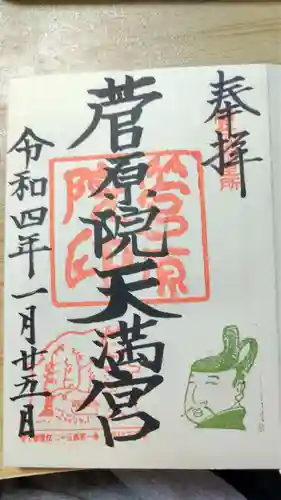 奉拝
菅原院天満宮
令和四年一月廿五日